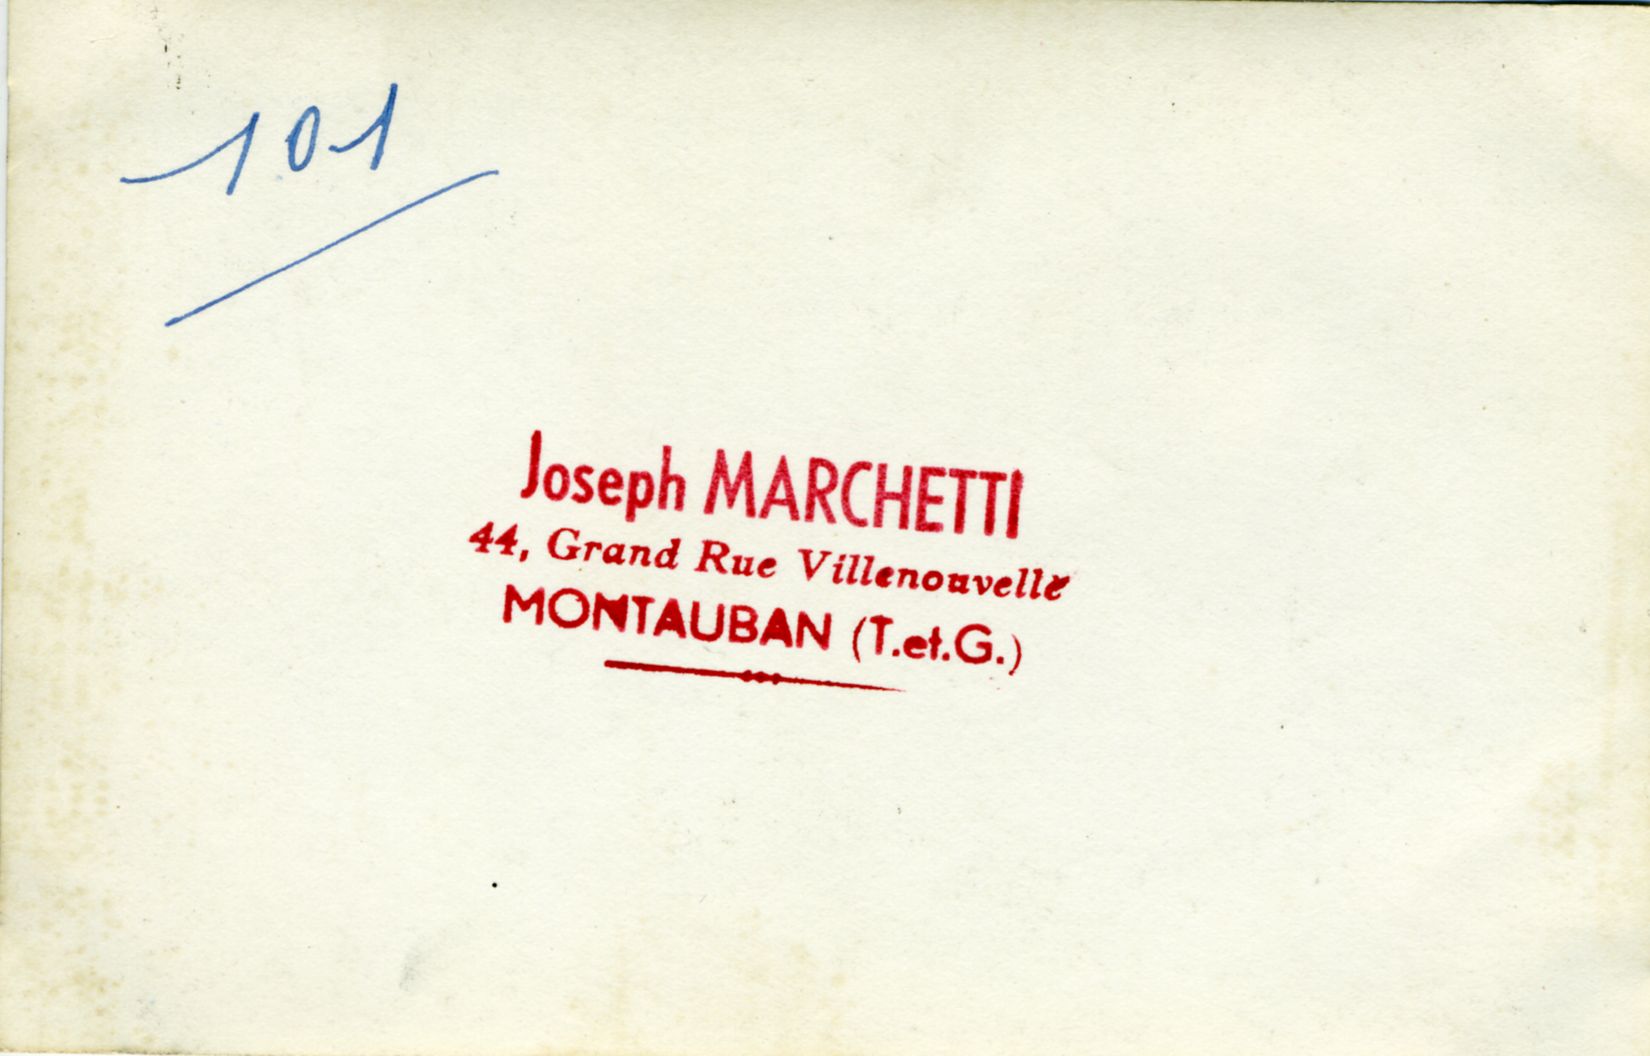 101
Joseph MARCHETTI
44, Grand Rue Villenouvelle
MONTAUBAN (T.et.G.)